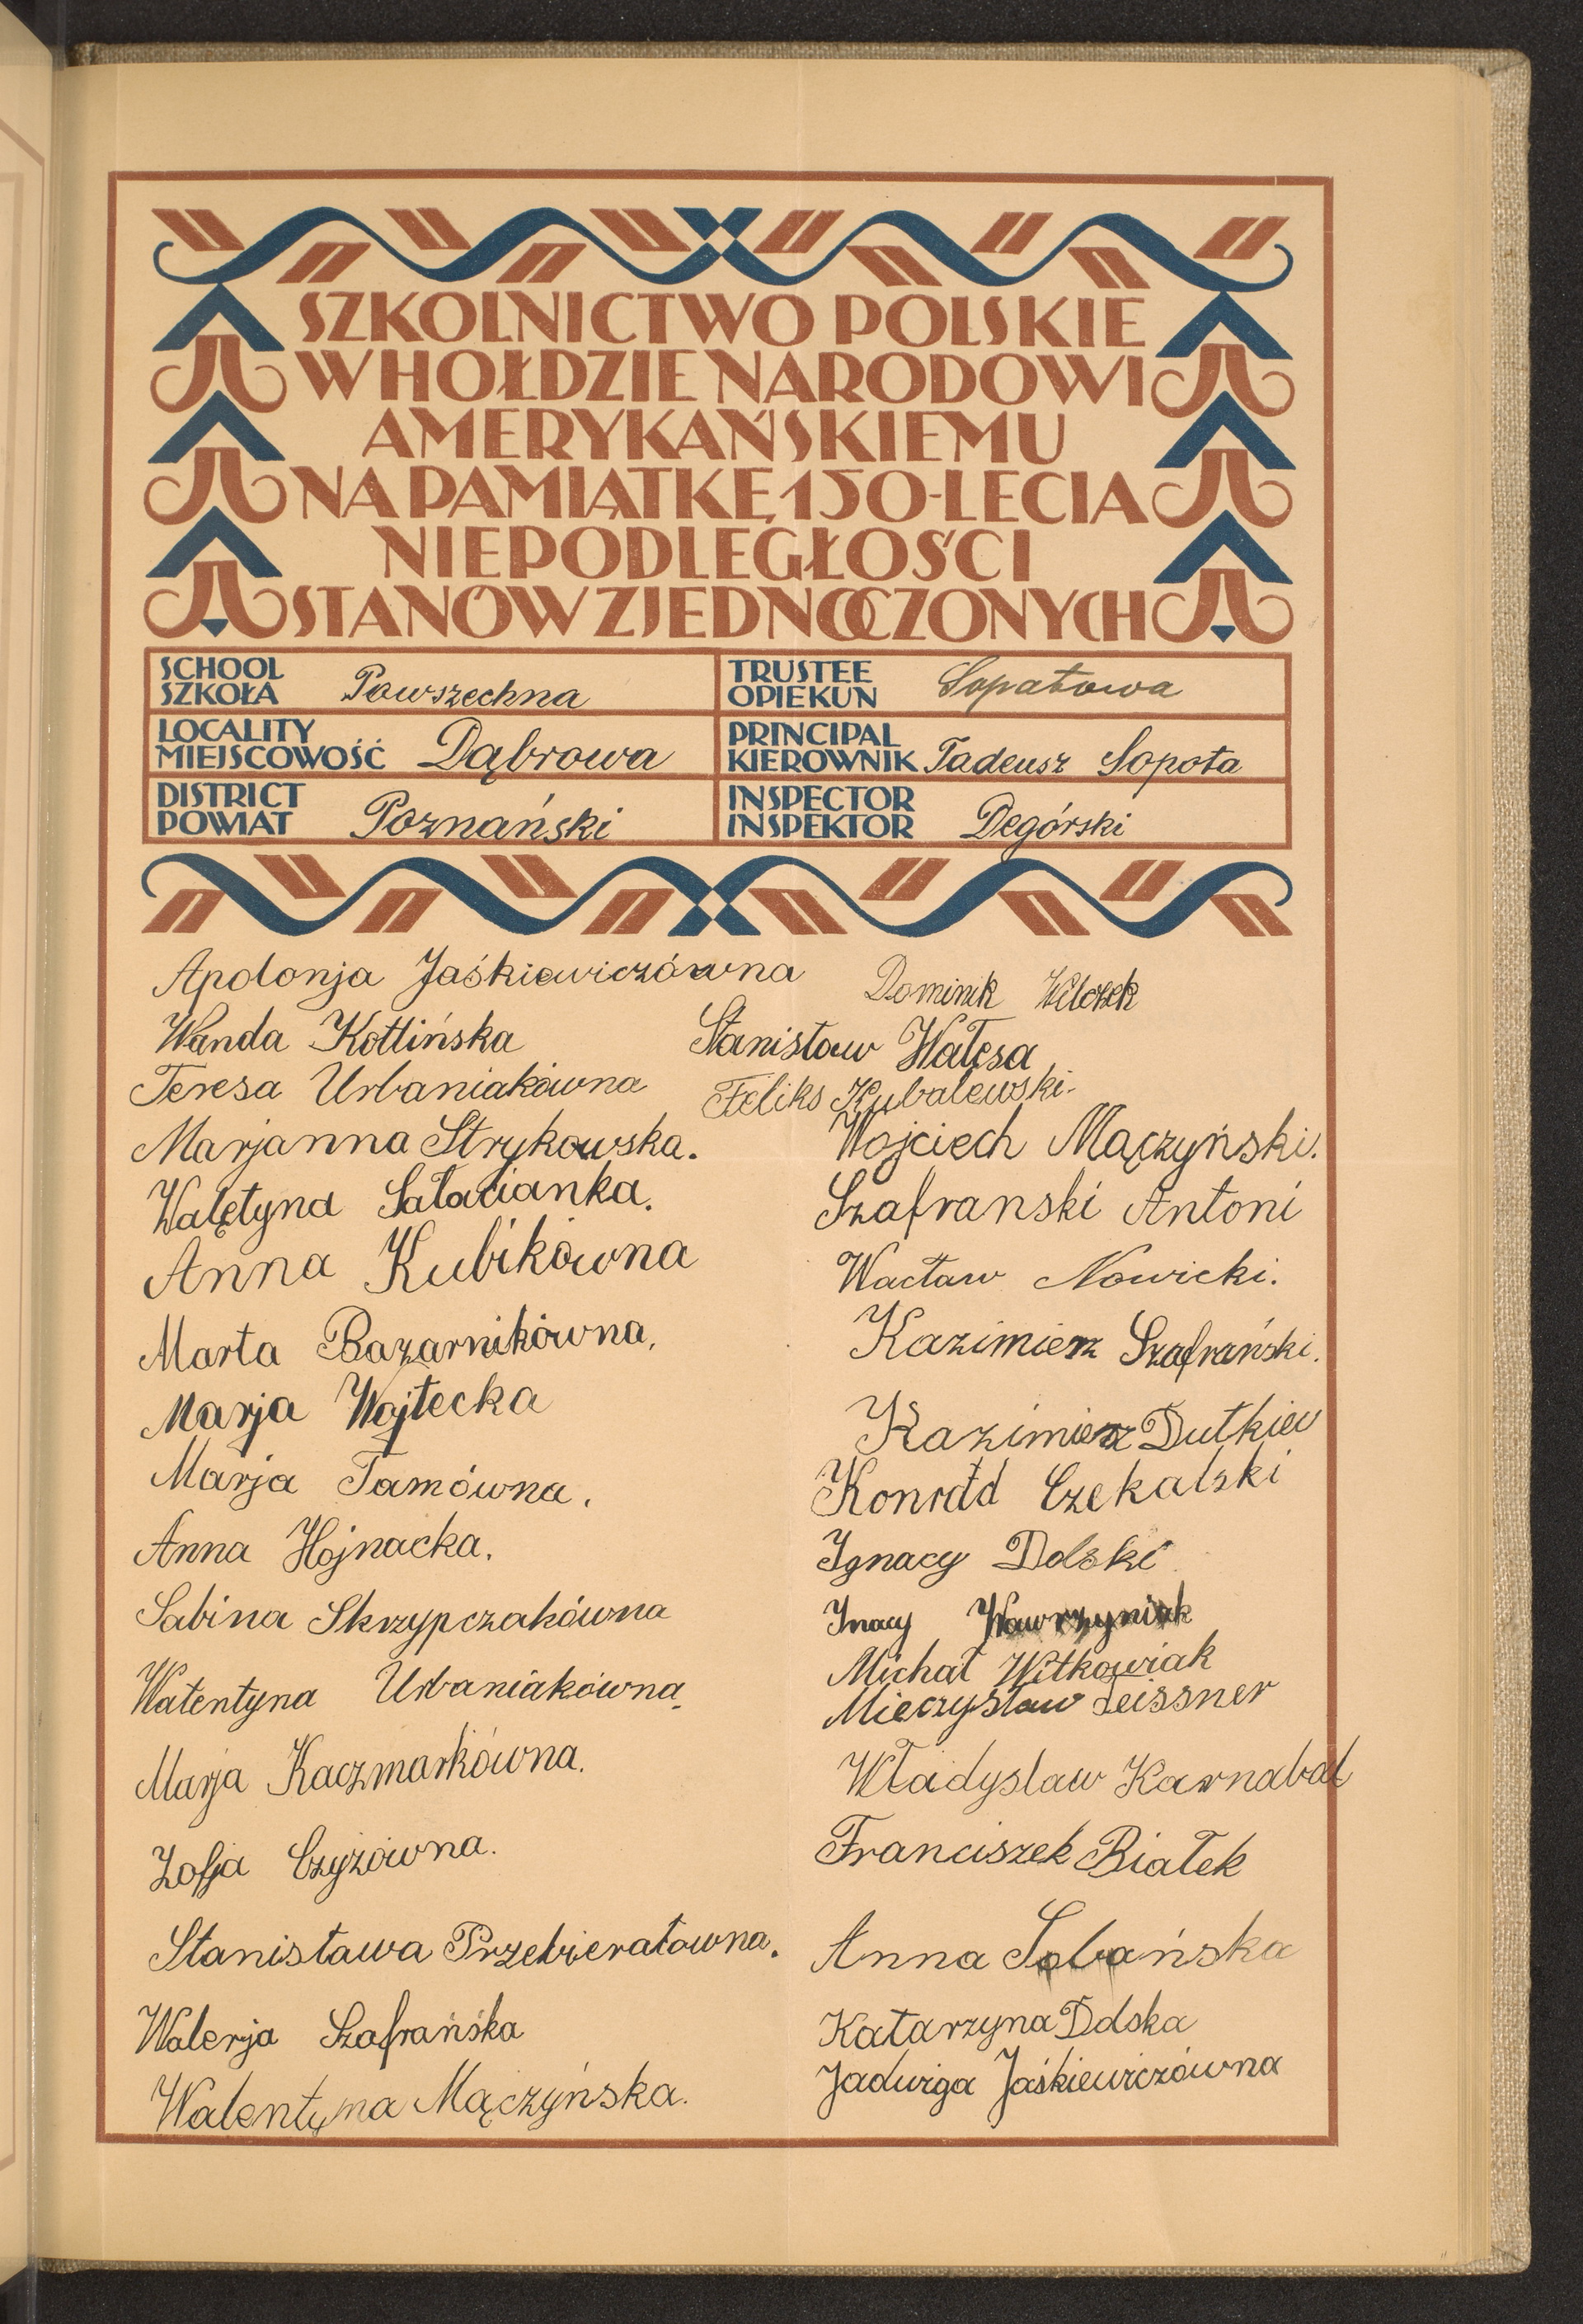 SZKOLNICTWO POLSKIE
W HOŁDZIE NARODOWI
AMERYKAŃSKIEMU
NA PAMIĄTKĘ 150-LECIA
NIEPODLEGŁOŚCI
STANÓW ZJEDNOCZONYCH
SCHOOL
SZKOŁA Powszechna
TRUSTEE
OPIEKUN Sopatowa
LOCALITY
MIEJSCOWOŚĆ Dąbrowa
PRINCIPAL
KIEROWNIK Tadeusz Sopota
DISTRICT
POWIAT Poznański
INSPECTOR
INSPEKTOR Degórski
Apolonja Jaśkiewiczówna
Wanda Kotlińska
Teresa Urbaniakówna
Marjanna Strykowska.
Walętyna Sałacianka.
Anna Kubikówna
Marta Bazarnikówna.
Marja Wojtecka
Marja Tamówna.
Anna Hojnacka.
Sabina Skrzypczakówna
Watentyna Urbaniakówna
Marja Kaczmarkówna.
Zofja Czyżówna.
Stanisława Przebierałowna.
Walerja Szafrańska
Walentyna Mączyńska.
Dominik
Stanisław Wałęsa
Feliks Kubalewski.
Wojciech Mączyński.
Szafranski Antoni
Wacław Nowicki.
Kazimierz Szafrański.
Kazimierz Dutkiew
Konrad Czekalski
Ignacy Dolski
Inacy Wawrzyniak
Michał Witkowiak
Mieczysław Zeissner
Władyslaw Karnabal
Franciszek Białek
Anna Sobańska
Katarzyna Dolska
Jadwiga Jaśkiewiczówna